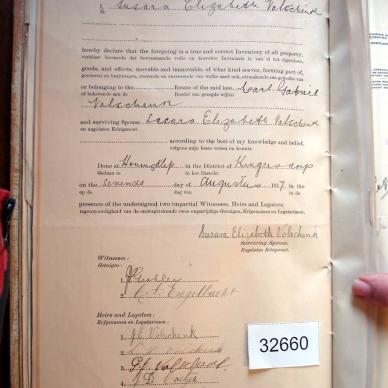 I, Susara Elizabeth Volschenk
hereby declare that the foregoing is a true and correct Inventory of all property,
verklaar hiermede dat bovenstaande volle en korrekte Inventaris is van al het eigendom,
goods, and effects, movable and immovable, of what kind soever, forming part of,
goederen en bezittingen, roerende en onroerende van welke aard ook, uitmakende een gedeelte van,
or belonging to the Estate of the said late Carl Gabriel
of behorende aan de Boedel van gezegde wijlen
Volschenk
and surviving Spouse Susara Elizabeth Volschenk
en nagelaten Echtgenoot
according to the best of my knowledge and belief.
volgens mijn beste weten en kennis.
Done at Honingklip in the District of Krugersdorp
Gedaan te in het District
on the sevende day of Augustus 1917. in the
op de dag van in de
presence of the undersigned two impartial Witnesses, Heirs and Legatees.
tegenwoordigheid van de ondergetekende twee onpartijdige Getuigen, Erfgenamen en Legatarissen.
Susara Elizabeth Volschenk
Surviving Spouse.
Nagelaten Echtgenoot.
Witnesses:
Getuigen:
1
2 Engelbrecht
Heirs and Legatees:
Erfgenamen en Legatarissen:
1 J E Volschenk
2
3
4
32660